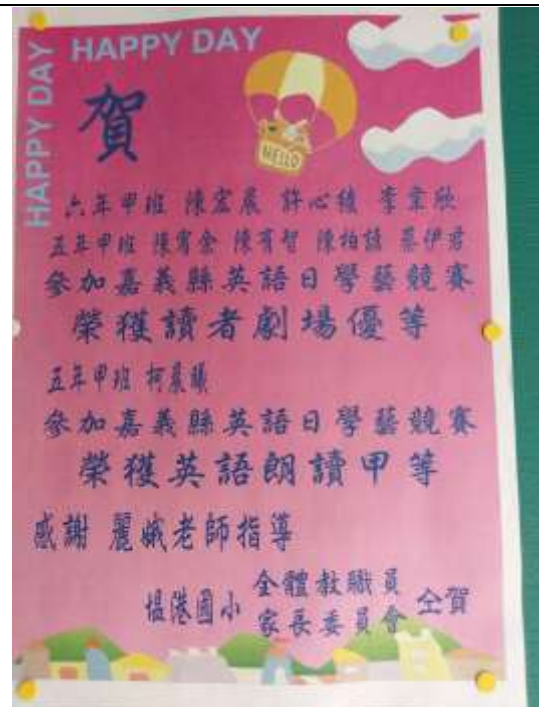 HAPPY DAY
HAPPY DAY
賀
HELLO
六年甲班 陳宏宸 許心 李
五年甲班 陳宥 陳宥智 陳柏 蔡伊君
參加嘉義縣英語日學藝競賽
榮獲讀者劇場優等
五年甲班 柯晨曦
參加嘉義縣英語日學藝競賽
榮獲英語朗讀甲等
感謝 麗娥老師指導
塭港國小
全體教職員
家長委員會
仝賀